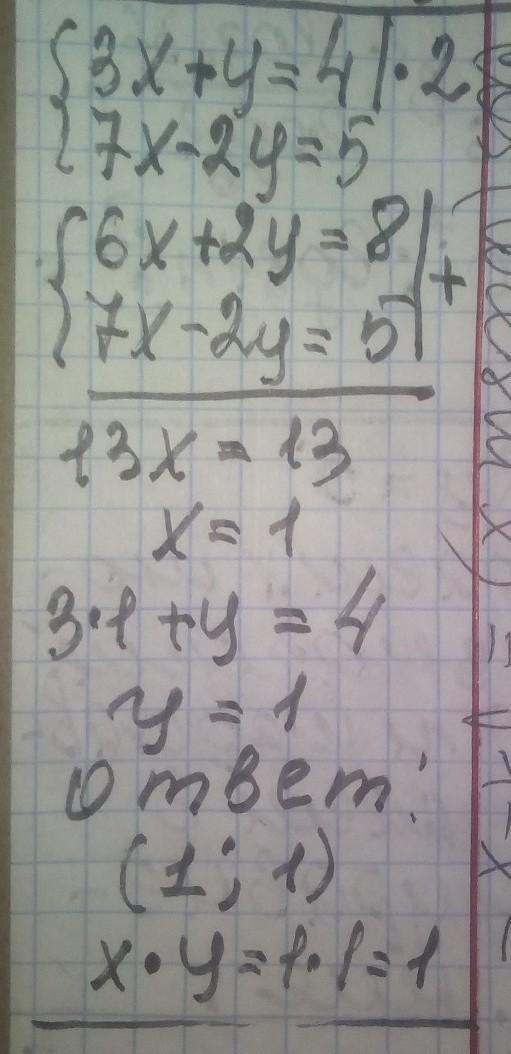 {3x+y=4|·2
{7x-2y=5
{6x+2y=8|+
{7x-2y=5|
13x=13
x=1
3·1+y=4
y=1
ответ:
(1; 1)
x·y=1·1=1